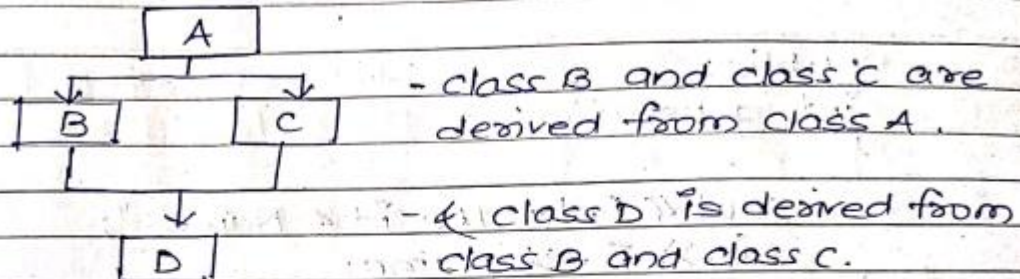 A
- class B and class C are
B C derived from class A.
- & class D is derived from
D class B and class C.